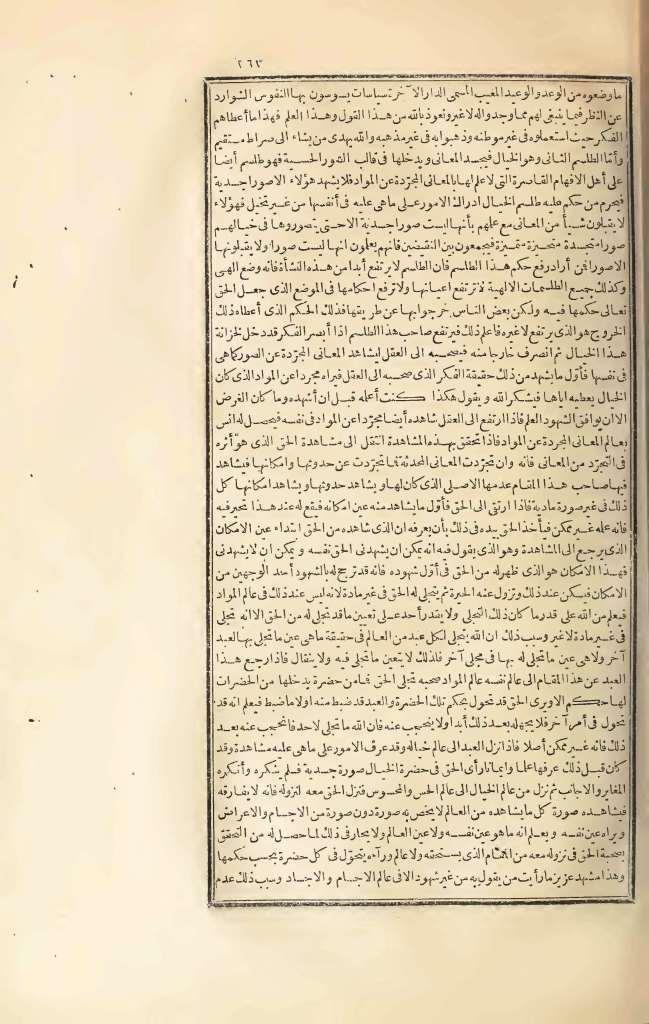 ٢٦٣
ما وضعوه من الوعد والوعيد المغيب المسمى الدار الآخرة سياسات يسوسون بها النفوس الشوارد
عن النظر فيما ينبغي لهم مما وجدوا له لا غير ونعوذ بالله من هذا القول وهذا العلم فهذا ما أعطاهم
الفكر حيث استعملوه في غير موطنه وذهبوا به في غير مذهبه والله يهدى من يشاء الى صراط مستقيم
وأما الطلسم الثانى وهو الخيال فيجسد المعانى ويدخلها فى قالب الصور الحسية فهو طلسم أيضا
على أهل الافهام القاصرة التى لا علم لها بالمعانى المجردة عن المواد فلا يشهد هؤلاء الاصورا جسدية
فيحرم من حكم عليه طلسم الخيال ادراك الامور على ماهى عليه فى أنفسها من غير تخيل فهؤلاء
لا يقبلون شيأ من المعانى مع علمهم بأنها ليست صورا جسدية الا حتى يتصوروها فى خيالهم
صورا متجسدة متحيزة متميزة فيجمعون بين النقيضين فانهم يعلمون انها ليست صورا ولا يقبلونها
الاصورا فمن أراد رفع حكم هذا الطلسم فان الطلسم لا يرتفع أبدا من هذه النشأة فانه وضع الهى
وكذلك جميع الطلسمات الالهية لا ترتفع اعيانها ولا ترفع احكامها فى الموضع الذى جعل الحق
تعالى حكمها فيه ولكن بعض الناس خرجوا بها عن طريقها فذلك الحكم الذى أعطاه ذلك
الخروج هو الذى يرتفع لا غيره فاعلم ذلك فيرتفع صاحب هذا الطلسم اذا أبصر الفكر قد دخل لخزانة
هذا الخيال ثم انصرف خارجا منه فيصحبه الى العقل ليشاهد المعانى المجردة عن الصور كماهى
فى نفسها فأول ما يشهد من ذلك حقيقة الفكر الذى صحبه الى العقل فيراه مجردا عن المواد الذى كان
الخيال يعطيه اياها فيشكر الله و يقول هكذا كنت أعلمه قبل ان أشهده وما كان الغرض
الا ان يوافق الشهود العلم فاذا ارتفع الى العقل شاهده أيضا مجردا عن المواد فى نفسه فيحصل له انس
بعالم المعانى المجردة عن المواد فاذا تحقق بهذه المشاهدة انتقل الى مشاهدة الحق الذى هو أنزه
فى التجرد من المعانى فانه وان تجردت المعانى المحدثة فما تجردت عن حدوثها وامكانها فيشاهد
فيها صاحب هذا المقام عدمها الاصلى الذى كان لها ويشاهد حدوثها ويشاهد امكانها كل
ذلك فى غير صورة مادية فاذا ارتقى الى الحق فأول ما يشاهد منه عين امكانه فيقع له عند هذا تحير فيه
فانه علمه غير ممكن فيأخذ الحق بيده فى ذلك بأن يعرفه ان الذى شاهده من الحق ابتداء عين الامكان
الذى يرجع الى المشاهدة وهو الذى يقول فيه انه يمكن ان يشهدنى الحق نفسه و يمكن ان لا يشهدنى
فهذا الامكان هو الذى ظهر له من الحق فى أول شهوده فانه قد ترجح له بالشهود أحد الوجهين من
الامكان فيسكن عند ذلك وتزول عنه الحيرة ثم يتجلى له الحق فى غير مادة لانه ليس عند ذلك فى عالم المواد
فيعلم من الله على قدر ما كان ذلك التجلى ولا يقدر أحد على تعيين ما قد تجلى له من الحق الا انه تجلى
فى غير مادة لا غير وسبب ذلك ان الله يتجلى لكل عبد من العالم فى حقيقة ماهى عين ما تجلى بها لعبد
آخر ولاهى عين ما تجلى له بها فى مجلى آخر فلذلك لا يتعين ما تجلى فيه ولا ينقال فاذا رجع هذا
العبد من هذا المقام الى عالم نفسه عالم المواد صحبه تجلى الحق فما من حضرة يدخلها من الحضرات
لها حكم الا ويرى الحق قد تحول بحكم تلك الحضرة والعبد قد ضبط منه اولا ما ضبط فيعلم انه قد
تحول فى أمر آخر فلا يجهله بعد ذلك أبدا ولا ينحجب عنه فان الله ما تجلى لاحد فانحجب عنه بعد
ذلك فانه غير ممكن أصلا فاذا نزل العبد الى عالم خياله وقد عرف الامور على ماهى عليه مشاهدة وقد
كان قبل ذلك عرفها علما وايمانا رأى الحق فى حضرة الخيال صورة جسدية فلم ينكره وأنكره
المغاير والاجانب ثم نزل من عالم الخيال الى عالم الحس والمحسوس فنزل الحق معه لنزوله فانه لا يفارقه
فيشاهده صورة كل ما يشاهده من العالم لا يخص به صورة دون صورة من الاجسام والاعراض
ويراه عين نفسه و يعلم انه ماهو عين نفسه ولا عين العالم ولا يحار فى ذلك لما حصل له من التحقق
بصحبة الحق فى نزوله معه من المقام الذى يستحقه ولا عالم وراءه يتحول فى كل حضرة بحسب حكمها
وهذا مشهد عزيز ما رأيت من يقول به من غير شهود الا فى عالم الاجسام والاجساد وسبب ذلك عدم